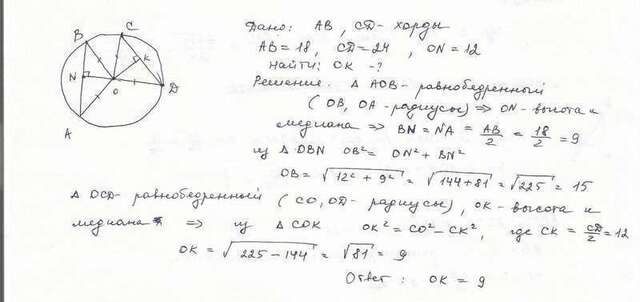 Дано: AB, CD - хорды
AB = 18, CD = 24, ON = 12
Найти: OK - ?
Решение. △ AOB - равнобедренный
(OB, OA - радиусы) => ON - высота и
медиана => BN = NA = AB/2 = 18/2 = 9
из △ OBN OB² = ON² + BN²
OB = √12² + 9² = √144 + 81 = √225 = 15
△ OCD - равнобедренный (CO, OD - радиусы), OK - высота и
медиана => из △ COK OK² = CO² - CK², где CK = CD/2 = 12
OK = √225 - 144 = √81 = 9
Ответ: OK = 9
B
C
N
K
O
D
A